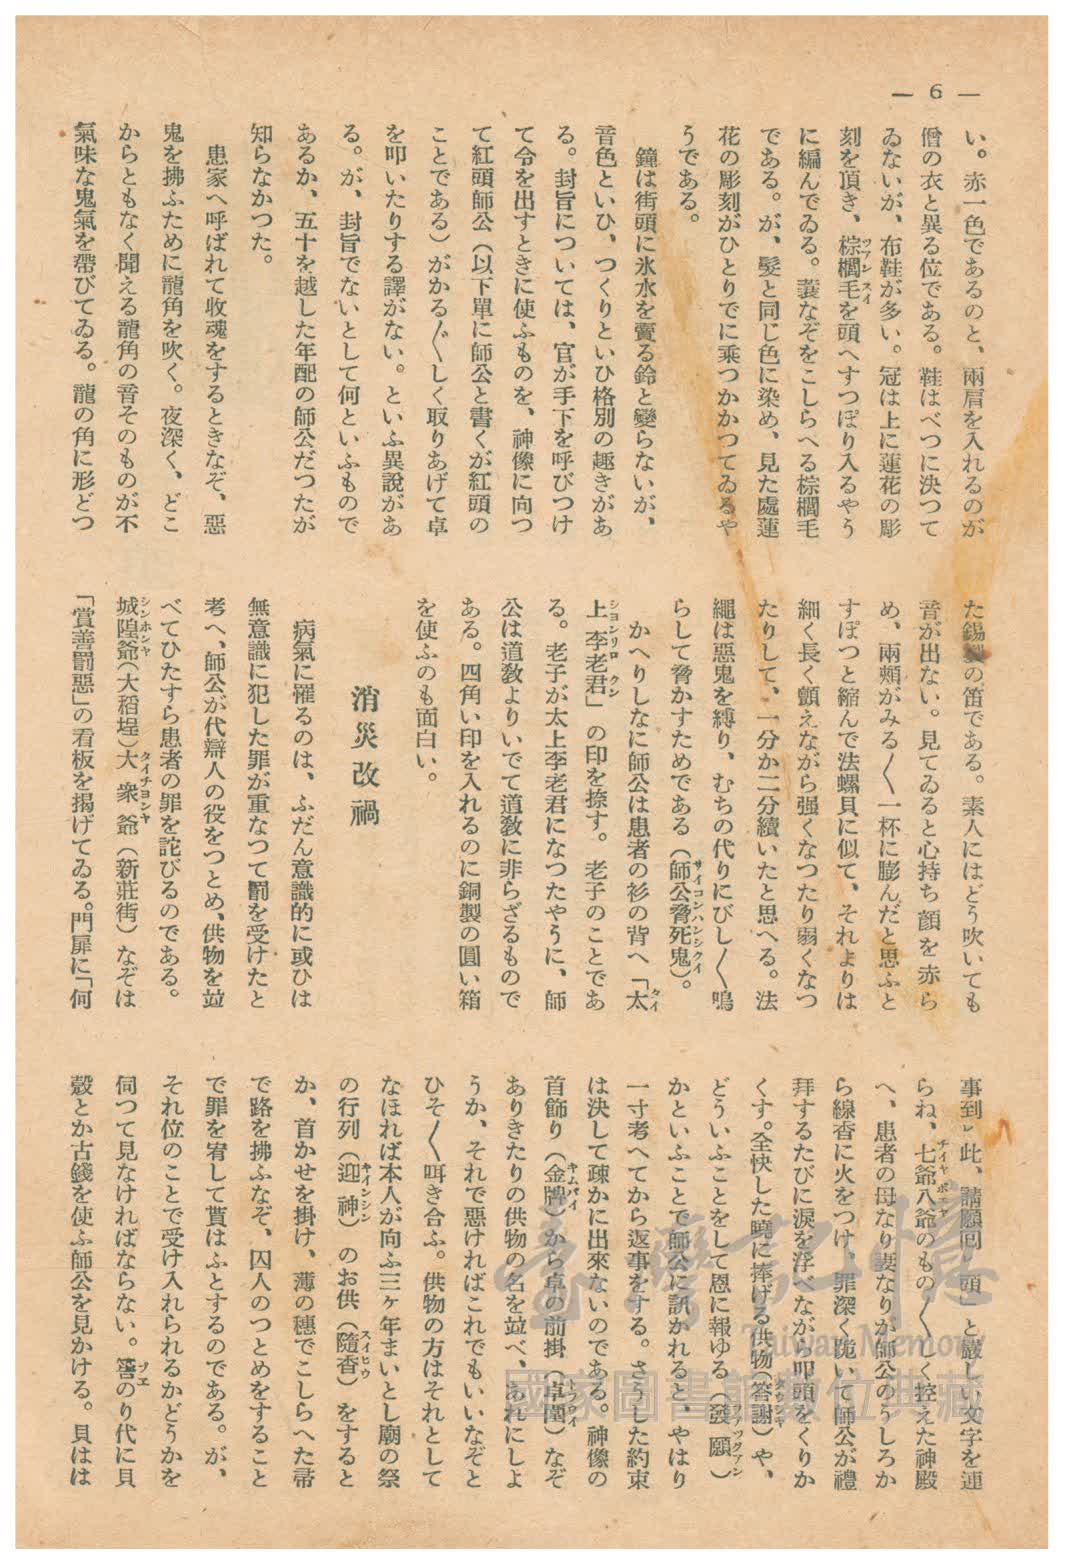 — 6 —
い。赤一色であるのと、兩肩を入れるのが
僧の衣と異る位である。鞋はべつに決つて
ゐないが、布鞋が多い。冠は上に蓮花の彫
刻を頂き、棕櫚毛を頭へすつぽり入るやう
に編んでゐる。蓑なぞをこしらへる棕櫚毛
である。が、髮と同じ色に染め、見た處蓮
花の彫刻がひとりでに乘つかかつてゐるや
うである。
鐘は街頭に氷水を賣る鈴と變らないが、
音色といひ、つくりといひ格別の趣きがあ
る。封旨については、官が手下を呼びつけ
て令を出すときに使ふものを、神像に向つ
て紅頭師公(以下單に師公と書くが紅頭の
ことである)がかる〴〵しく取りあげて卓
を叩いたりする譯がない。といふ異說があ
る。が、封旨でないとして何といふもので
あるか、五十を越した年配の師公だつたが
知らなかつた。
患家へ呼ばれて收魂をするときなぞ、惡
鬼を拂ふために龍角を吹く。夜深く、どこ
からともなく聞える龍角の音そのものが不
氣味な鬼氣を帶びてゐる。龍の角に形どつ
た錫製の笛である。素人にはどう吹いても
音が出ない。見てゐると心持ち顏を赤ら
め、兩頰がみる〳〵一杯に膨んだと思ふと
すぽつと縮んで法螺貝に似て、それよりは
細く長く顫えながら强くなつたり弱くなつ
たりして、一分か二分續いたと思へる。法
繩は惡鬼を縛り、むちの代りにびし〳〵鳴
らして脅かすためである(師公脅死鬼)。
かへりしなに師公は患者の衫の背へ「太
上李老君」の印を捺す。老子のことであ
る。老子が太上李老君になつたやうに、師
公は道敎よりいでて道敎に非らざるもので
ある。四角い印を入れるのに銅製の圓い箱
を使ふのも面白い。
消災改禍
病氣に罹るのは、ふだん意識的に或ひは
無意識に犯した罪が重なつて罰を受けたと
考へ、師公が代辯人の役をつとめ、供物を竝
べてひたすら患者の罪を詫びるのである。
城隍爺(大稻埕)大衆爺(新莊街)なぞは
「賞善罰惡」の看板を揭げてゐる。門扉に「何
事到此、請願回頭」と嚴しい文字を連
らね、七爺八爺のもの〳〵しく控えた神殿
へ、患者の母なり妻なりが師公のうしろか
ら線香に火をつけ、罪深く跪いて師公が禮
拜するたびに淚を浮べながら叩頭をくりか
くす。全快した曉に捧げる供物(答謝)や、
どういふことをして恩に報ゆる(發願)
かといふことで師公に訊かれると、やはり
一寸考へてから返事をする。さうした約束
は決して疎かに出來ないのである。神像の
首飾り(金牌)から卓の前掛(卓圍)なぞ
ありきたりの供物の名を竝べ、あれにしよ
うか、それで惡ければこれでもいいなぞと
ひそ〳〵咡き合ふ。供物の方はそれとして
なほれば本人が向ふ三ヶ年まいとし廟の祭
の行列(迎神)のお供(隨香)をすると
か、首かせを掛け、薄の穗でこしらへた帚
で路を拂ふなぞ、囚人のつとめをすること
で罪を宥して貰はふとするのである。が、
それ位のことで受け入れられるかどうかを
伺つて見なければならない。筶のり代に貝
殼とか古錢を使ふ師公を見かける。貝はは
臺灣記憶
Taiwan Memory
國家圖書館數位典藏